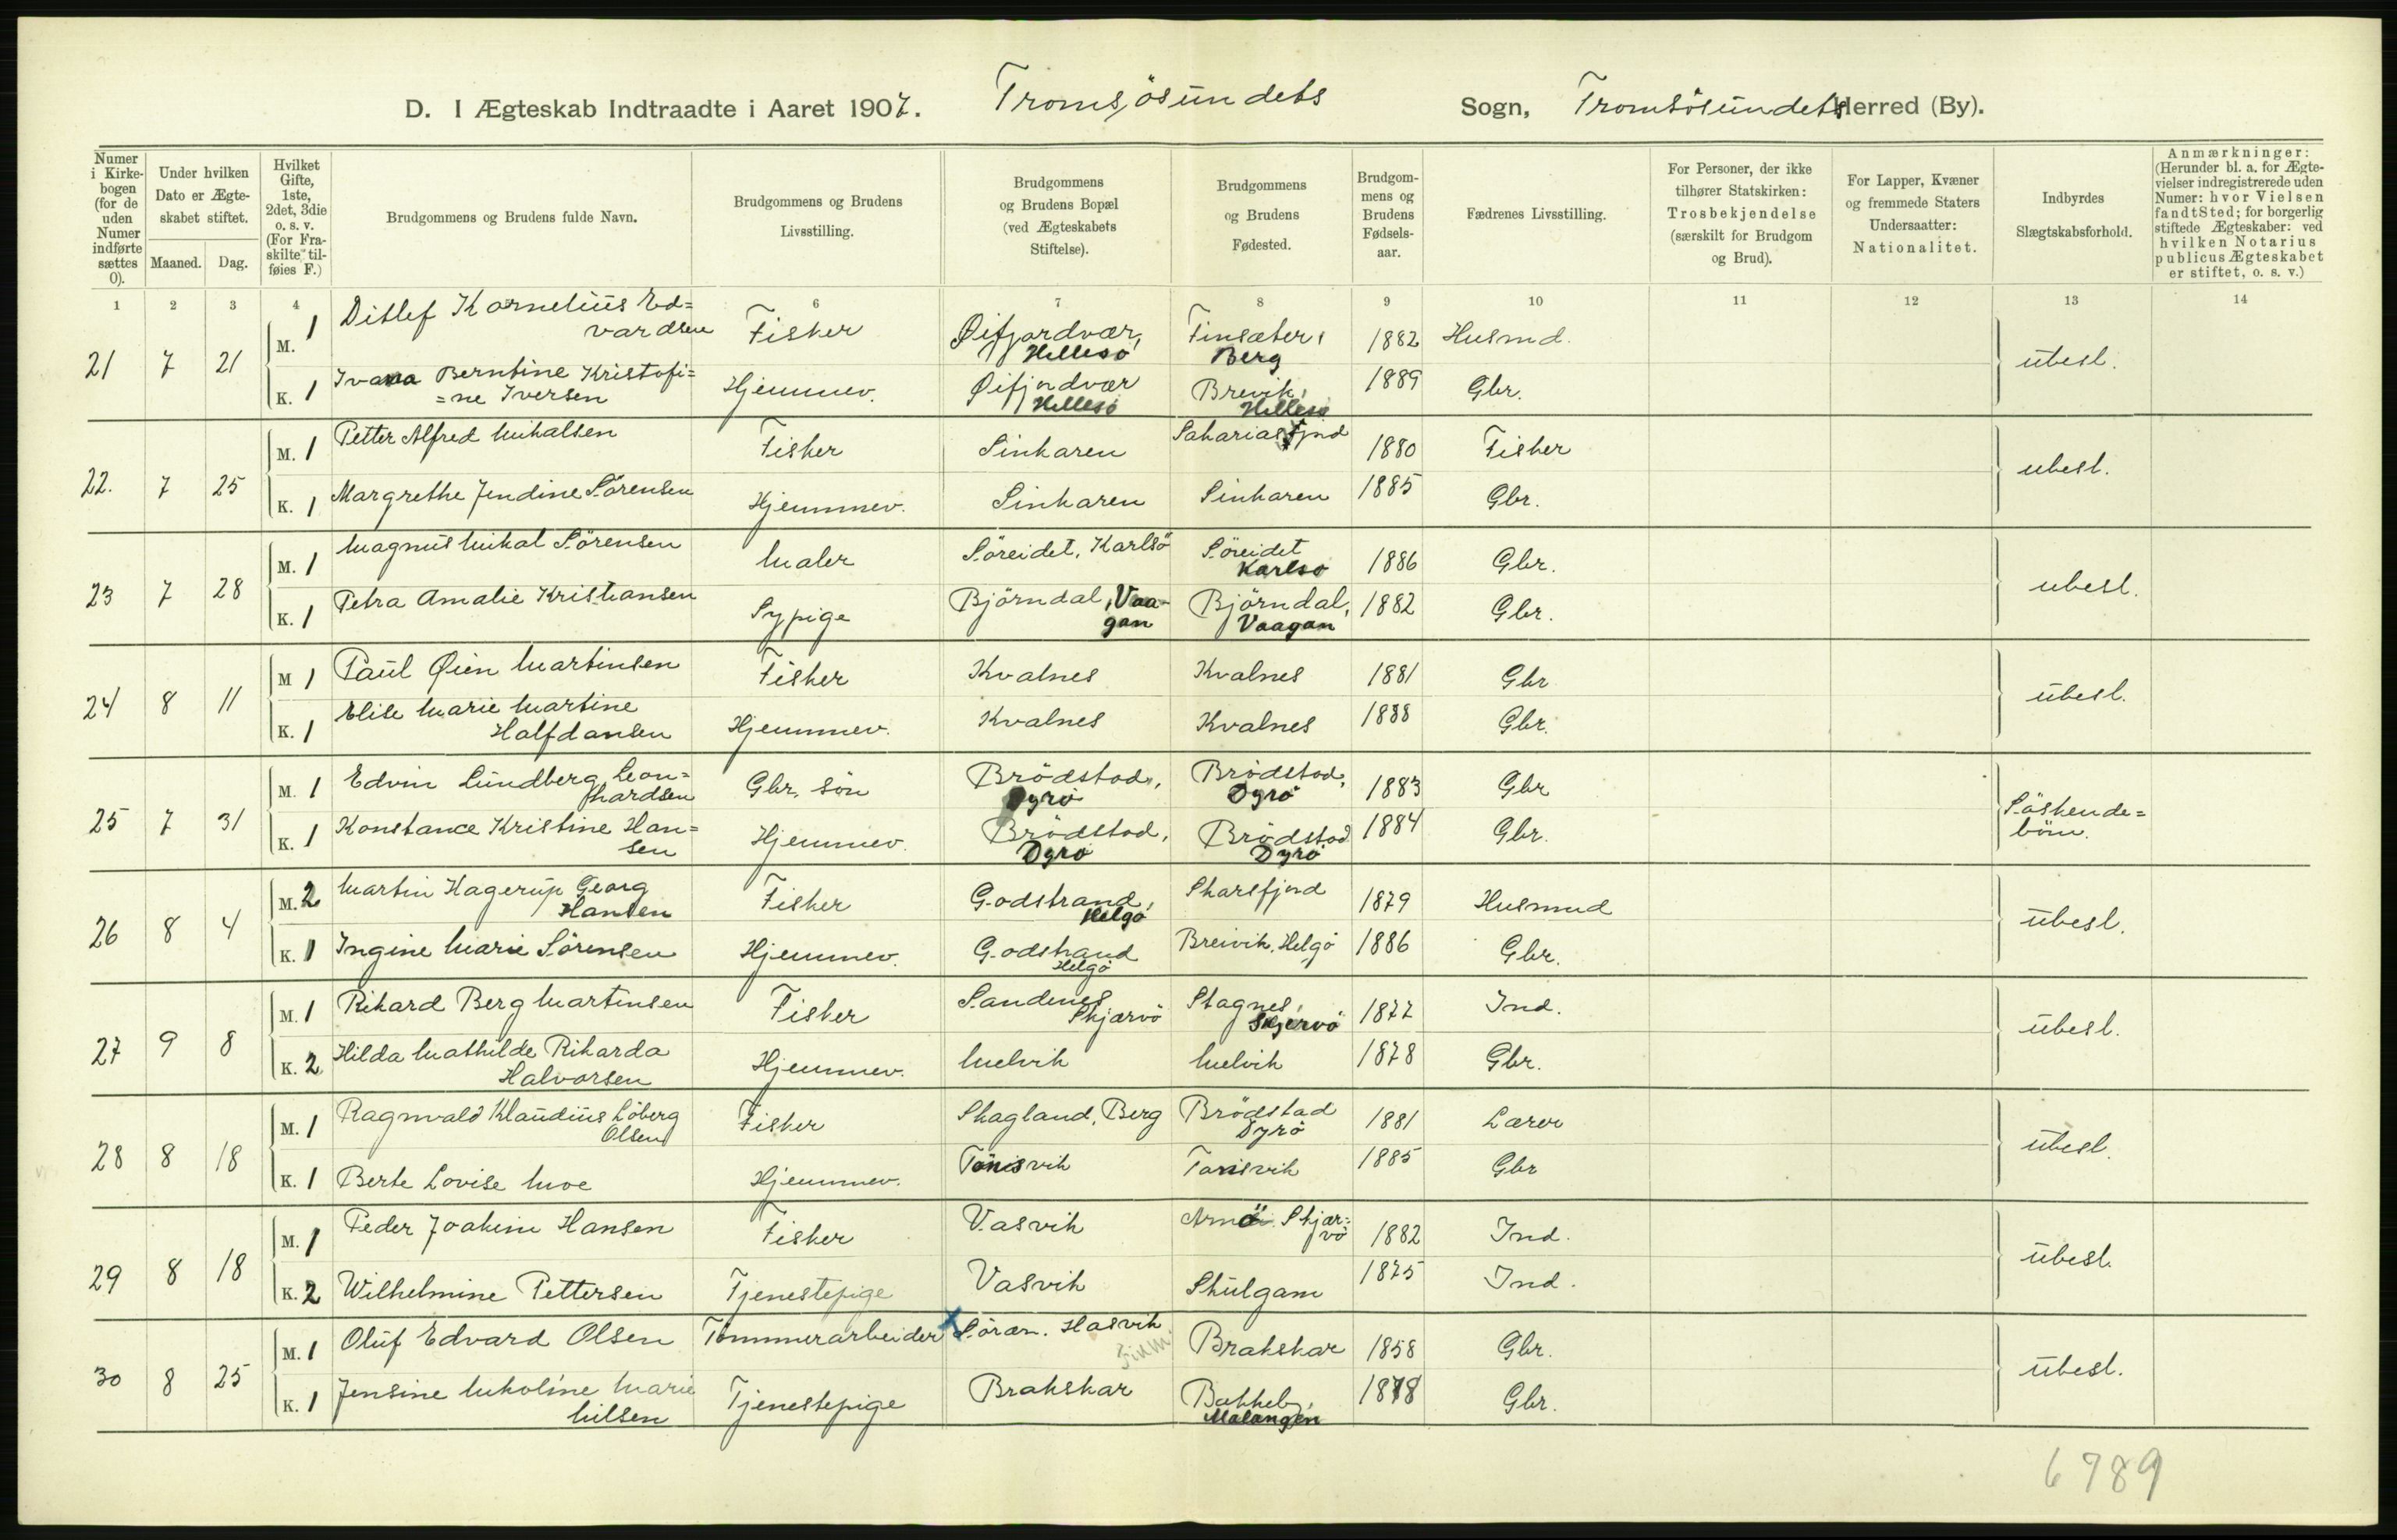 D. I Ægteskab Indtraadte i Aaret 1907. Tromsøsundets Sogn, Tromsøsundets Herred (By).
Numer i Kirkebogen (for de uden Numer indførte sættes 0).
Under hvilken Dato er Ægteskabet stiftet.
Maaned. Dag.
Hvilket Gifte, 1ste, 2det, 3die o. s. v. (For Fraskilte tilføies F.)
Brudgommens og Brudens fulde Navn.
Brudgommens og Brudens Livsstilling.
Brudgommens og Brudens Bopæl (ved Ægteskabets Stiftelse).
Brudgommens og Brudens Fødested.
Brudgommens og Brudens Fødselsaar.
Fædrenes Livsstilling.
For Personer, der ikke tilhører Statskirken: Trosbekjendelse (særskilt for Brudgom og Brud).
For Lapper, Kvæner og fremmede Staters Undersaatter: Nationalitet.
Indbyrdes Slægtskabsforhold.
Anmærkninger: (Herunder bl. a. for Ægtevielser indregistrerede uden Numer: hvor Vielsen fandt Sted; for borgerlig stiftede Ægteskaber: ved hvilken Notarius publicus Ægteskabet er stiftet, o. s. v.)
1 2 3 4 6 7 8 9 10 11 12 13 14
21 7 21 M. 1 Ditlef Kornelius Ed=vardsen Fisker Øifjordvær, Hillesö Finsæter, Berg 1882 Husmd. ubesl.
K. 1 Ivara Berntine Kristofi==ne Iversen Hjemmev. Øifjndvær Hillesö Brevik, Hillesö 1889 Gbr.
22. 7 25 M. 1 Petter Alfred Mikalsen Fisker Sinkaren Sakariasfjnd 1880 Fisker ubesl.
K. 1 Margrethe Jendine Sörensen Hjemmev. Sinkaren Sinkaren 1885 Gbr.
23 7 28 M. 1 Magnus Mikal Sörensen Maler Söreidet, Karlsö Söreidet Karlsö 1886 Gbr. ubesl.
K. 1 Petra Amalie Kristiansen Sypige Björndal, Vaagan Björndal, Vaagan 1882 Gbr.
24 8 11 M 1 Paul Øien Martinsen Fisker Kvalnes Kvalnes 1881 Gbr ubesl.
K. 1 Elise Marie Martine Halfdansen Hjemmev. Kvalnes Kvalnes 1888 Gbr.
25 7 31 M. 1 Edvin Lundberg Leon=hardsen Gbr. sön Brödstad, Dyrö Brödstad, Dyrö 1883 Gbr Söskende=börn.
K. 1 Konstance Kristine Han=sen Hjemmev. Brödstad, Dyrö Brödstad Dyrö 1884 Gbr.
26 8 4 M. 2 Martin Hagerup Georg Hansen Fisker Godstrand, Helgö Skarsfjord 1879 Husmnd ubesl.
K. 1 Ingine Marie Sörensen Hjemmev. Godstrand Helgö Breivik, Helgö 1886 Gbr.
27 9 8 M. 1 Rikard Berg Martinsen Fisker Sandnes Skjærvö Stagnes, Skjervö 1877 Ind. ubesl.
K. 2 Hilda Mathilde Rikarda Halvorsen Hjemmev. Melvik Melvik 1878 Gbr.
28 8 18 M. 1 Ragnvald Klaudius Löberg Olsen Fisker Skagland, Berg Brödstad Dyrö 1881 Lærer ubesl.
K. 1 Berte Lovise Moe Hjemmev. Tönsvik Tönsvik 1885 Gbr
29 8 18 M. 1 Peder Joakim Hansen Fisker Vasvik Arnö. Skjær=vö 1882 Ind. ubesl.
K. 2 Wilhelmine Pettersen Tjenestepige Vasvik Skulgam 1875 Ind.
30 8 25 M. 1 Oluf Edvard Olsen Tömmerarbeider x Sörøen. Hasvik Finm. Brakskar 1858 Gbr. ubesl.
K. 1 Jensine Nikoline Marie Nilsen Tjenestepige Brakskar Bakkeby, Malangen 1878 Gbr.
6789